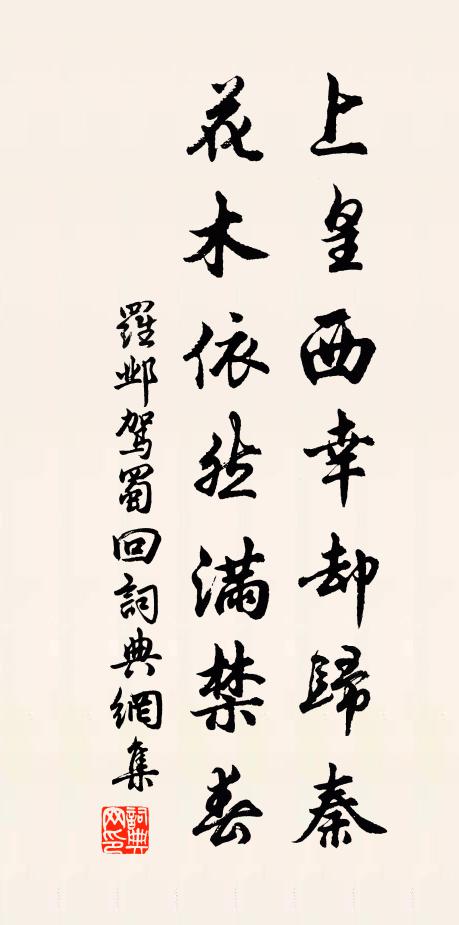 上皇西幸却歸秦
花木依然滿禁春
羅鄴駕蜀回詞典網集
詞典網印